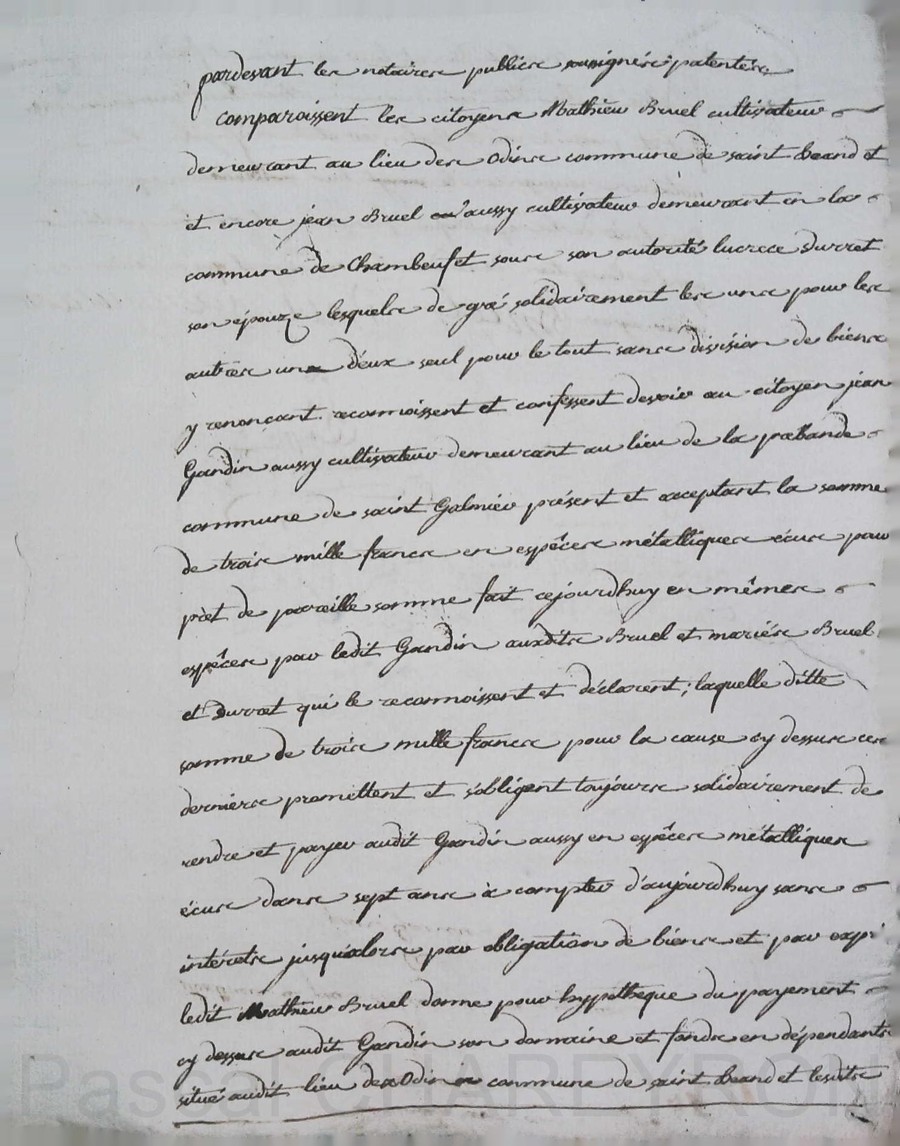 pardevant les notaires publics soussignés patentés
comparoissent les citoyens Mathieu Bruel cultivateur
demeurant au lieu des Odins commune de saint beand et
et encore jean Bruel aussy cultivateur demeurant en la
commune de Chambeuf et sous son autorité lucrece Durret
son épouze lesquels de gré solidairement les uns pour les
autres un deux seul pour le tout sans division de biens
y renonçant reconnoissent et confessent devoir au citoyen jean
Gandin aussy cultivateur demeurant au lieu de la prebande
commune de saint Galmier présent et acceptant la somme
de trois mille francs en espêces métalliques écus pour
prèt de pareille somme fait cejourdhuy en mêmes
espêces par ledit Gandin auxdits Bruel et mariés Bruel
et Durret qui le reconnoissent et déclarent; laquelle ditte
somme de trois mille francs pour la cause cy dessus ces
derniers promettent et s'obligent toujours solidairement de
rendre et payer audit Gandin aussy en espêces métalliques
écus dans sept ans à compter d'aujourdhuy sans
intérets jusqu'alors par obligation de biens et par exp:
ledit Mathieu Bruel donne pour hypotheque du payement
cy dessus audit Gandin son domaine et fonds en dépendants
situé audit lieu des Odins commune de saint beand et lesdits
Pascal CHAREYRON